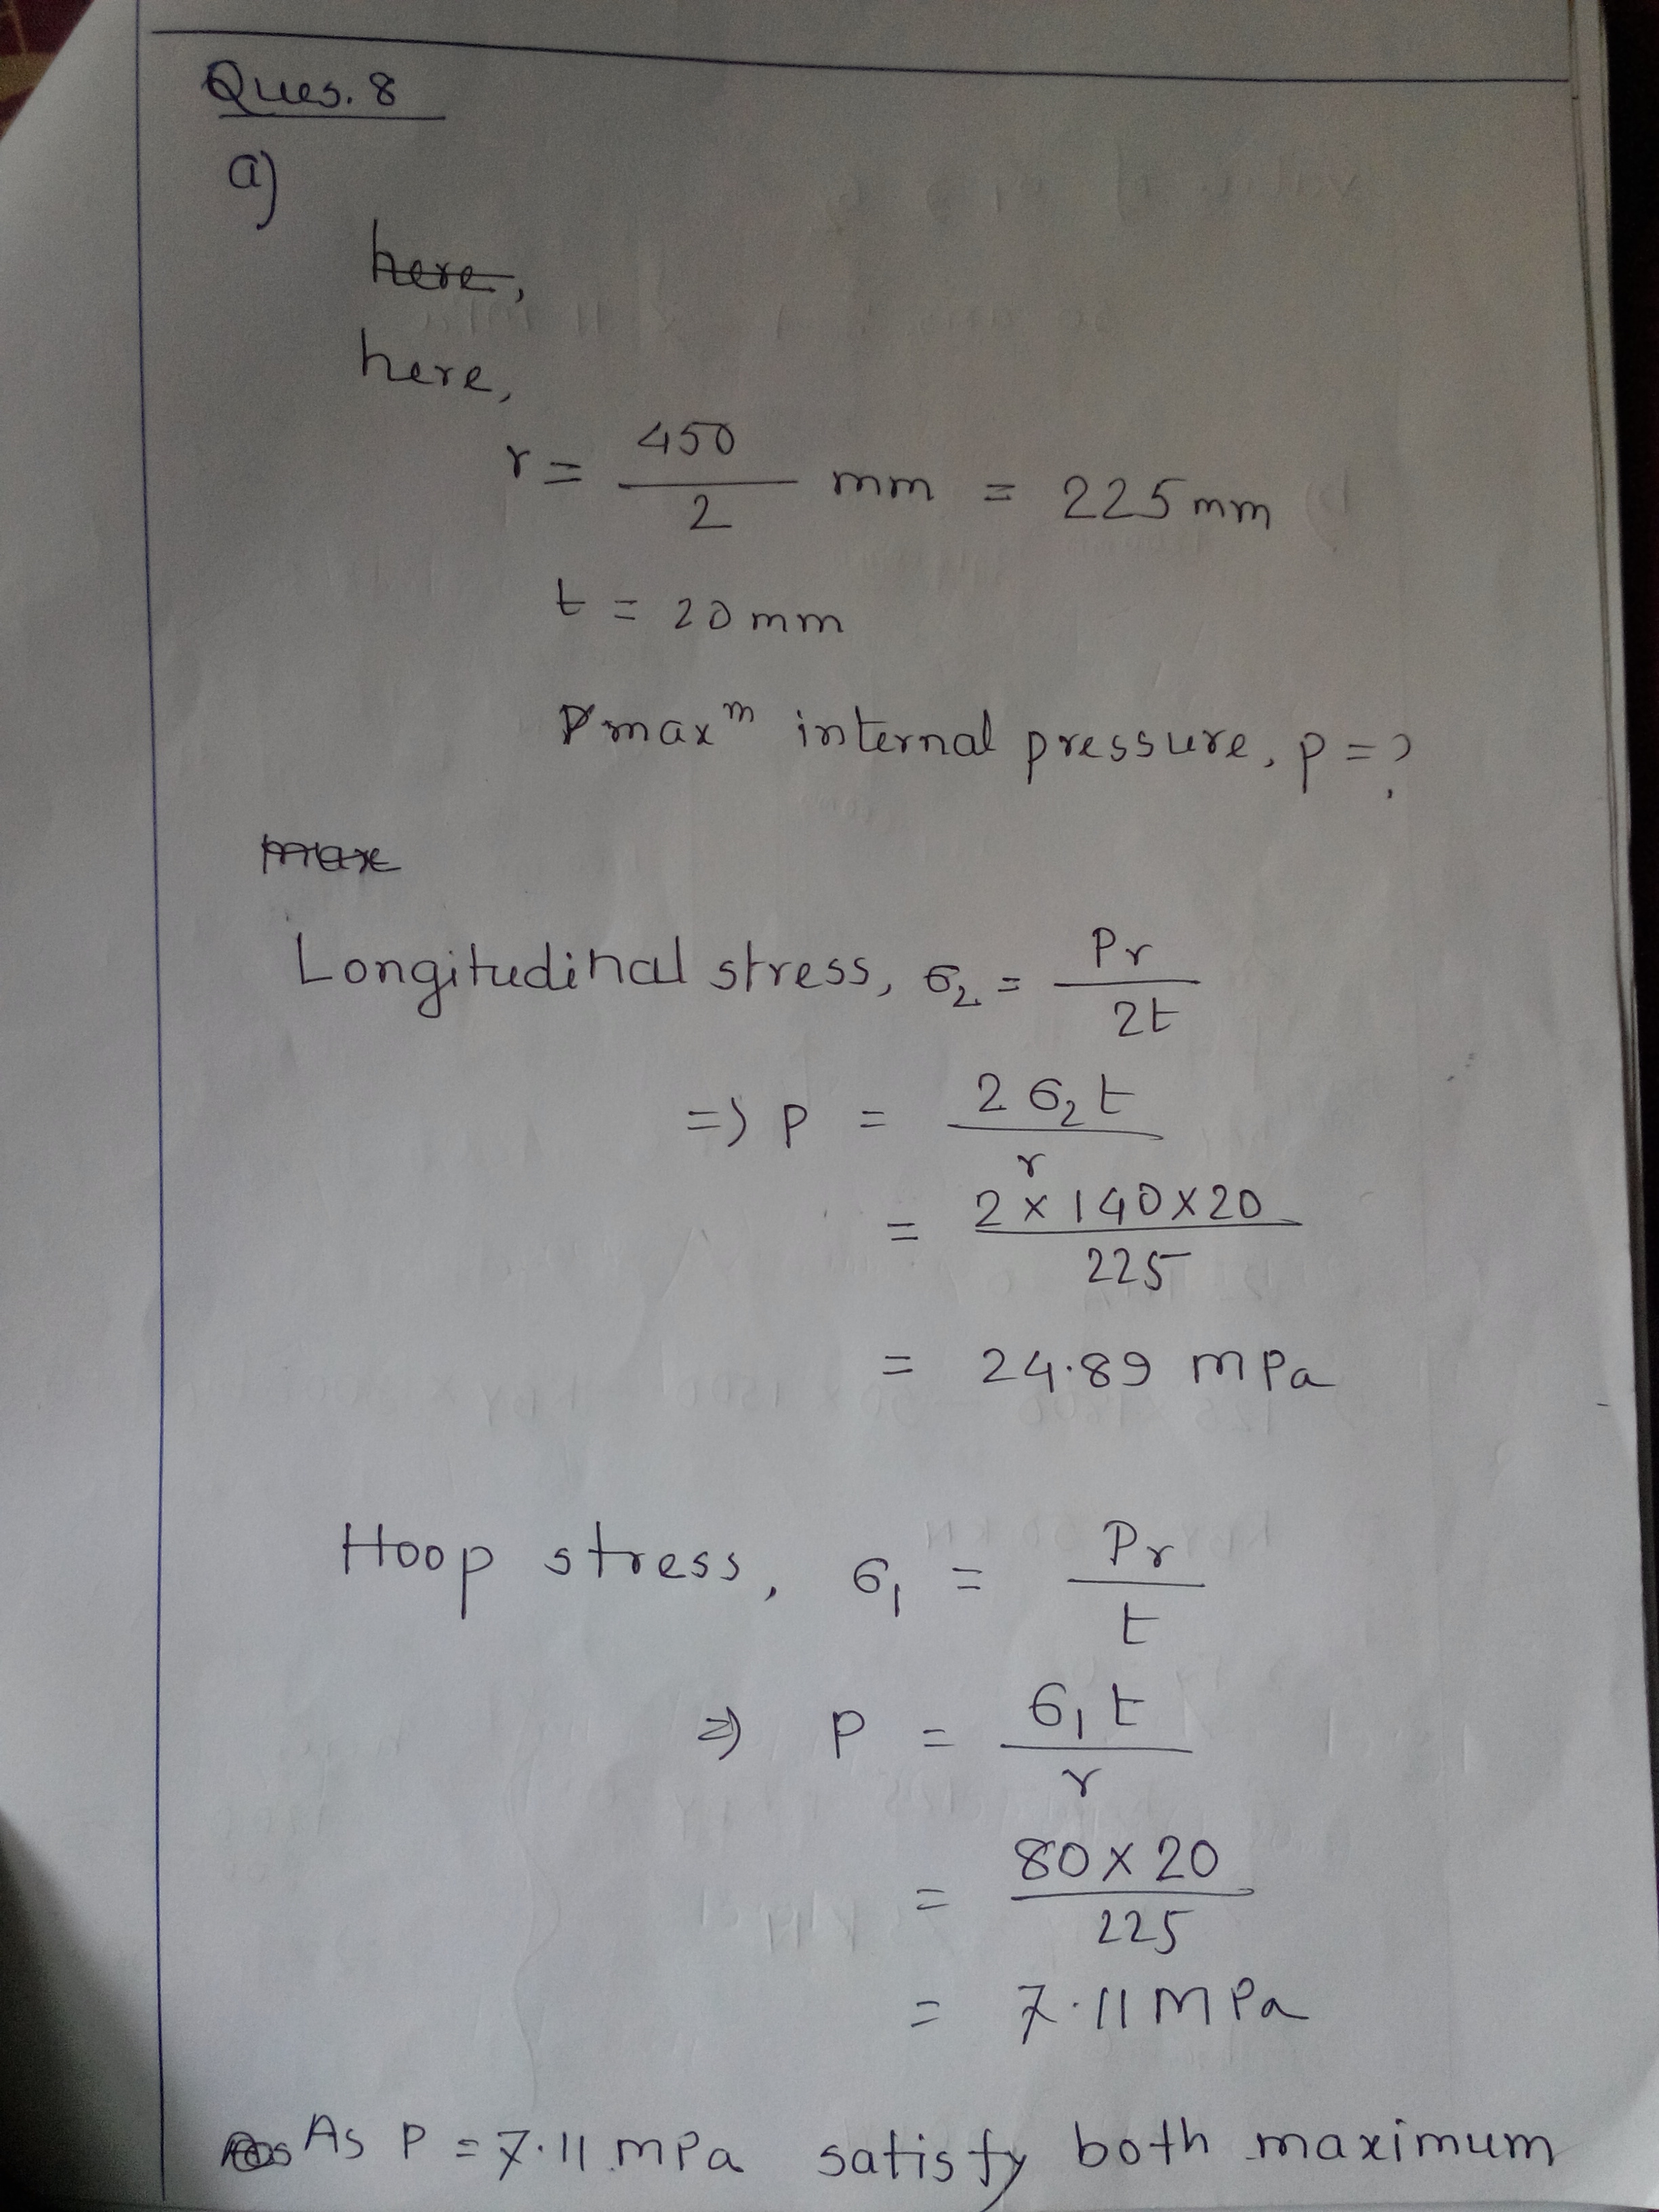 Ques. 8
a)
here,
here,
r = 450/2 mm = 225 mm
t = 20 mm
maxᵐ internal pressure, p = ?
max
Longitudinal stress, σ₂ = Pr/2t
=> p = 2σ₂t/r
= 2 × 140 × 20/225
= 24.89 mPa
Hoop stress, σ₁ = Pr/t
=> p = σ₁t/r
= 80 × 20/225
= 7.11 MPa
As P = 7.11 mPa satisfy both maximum